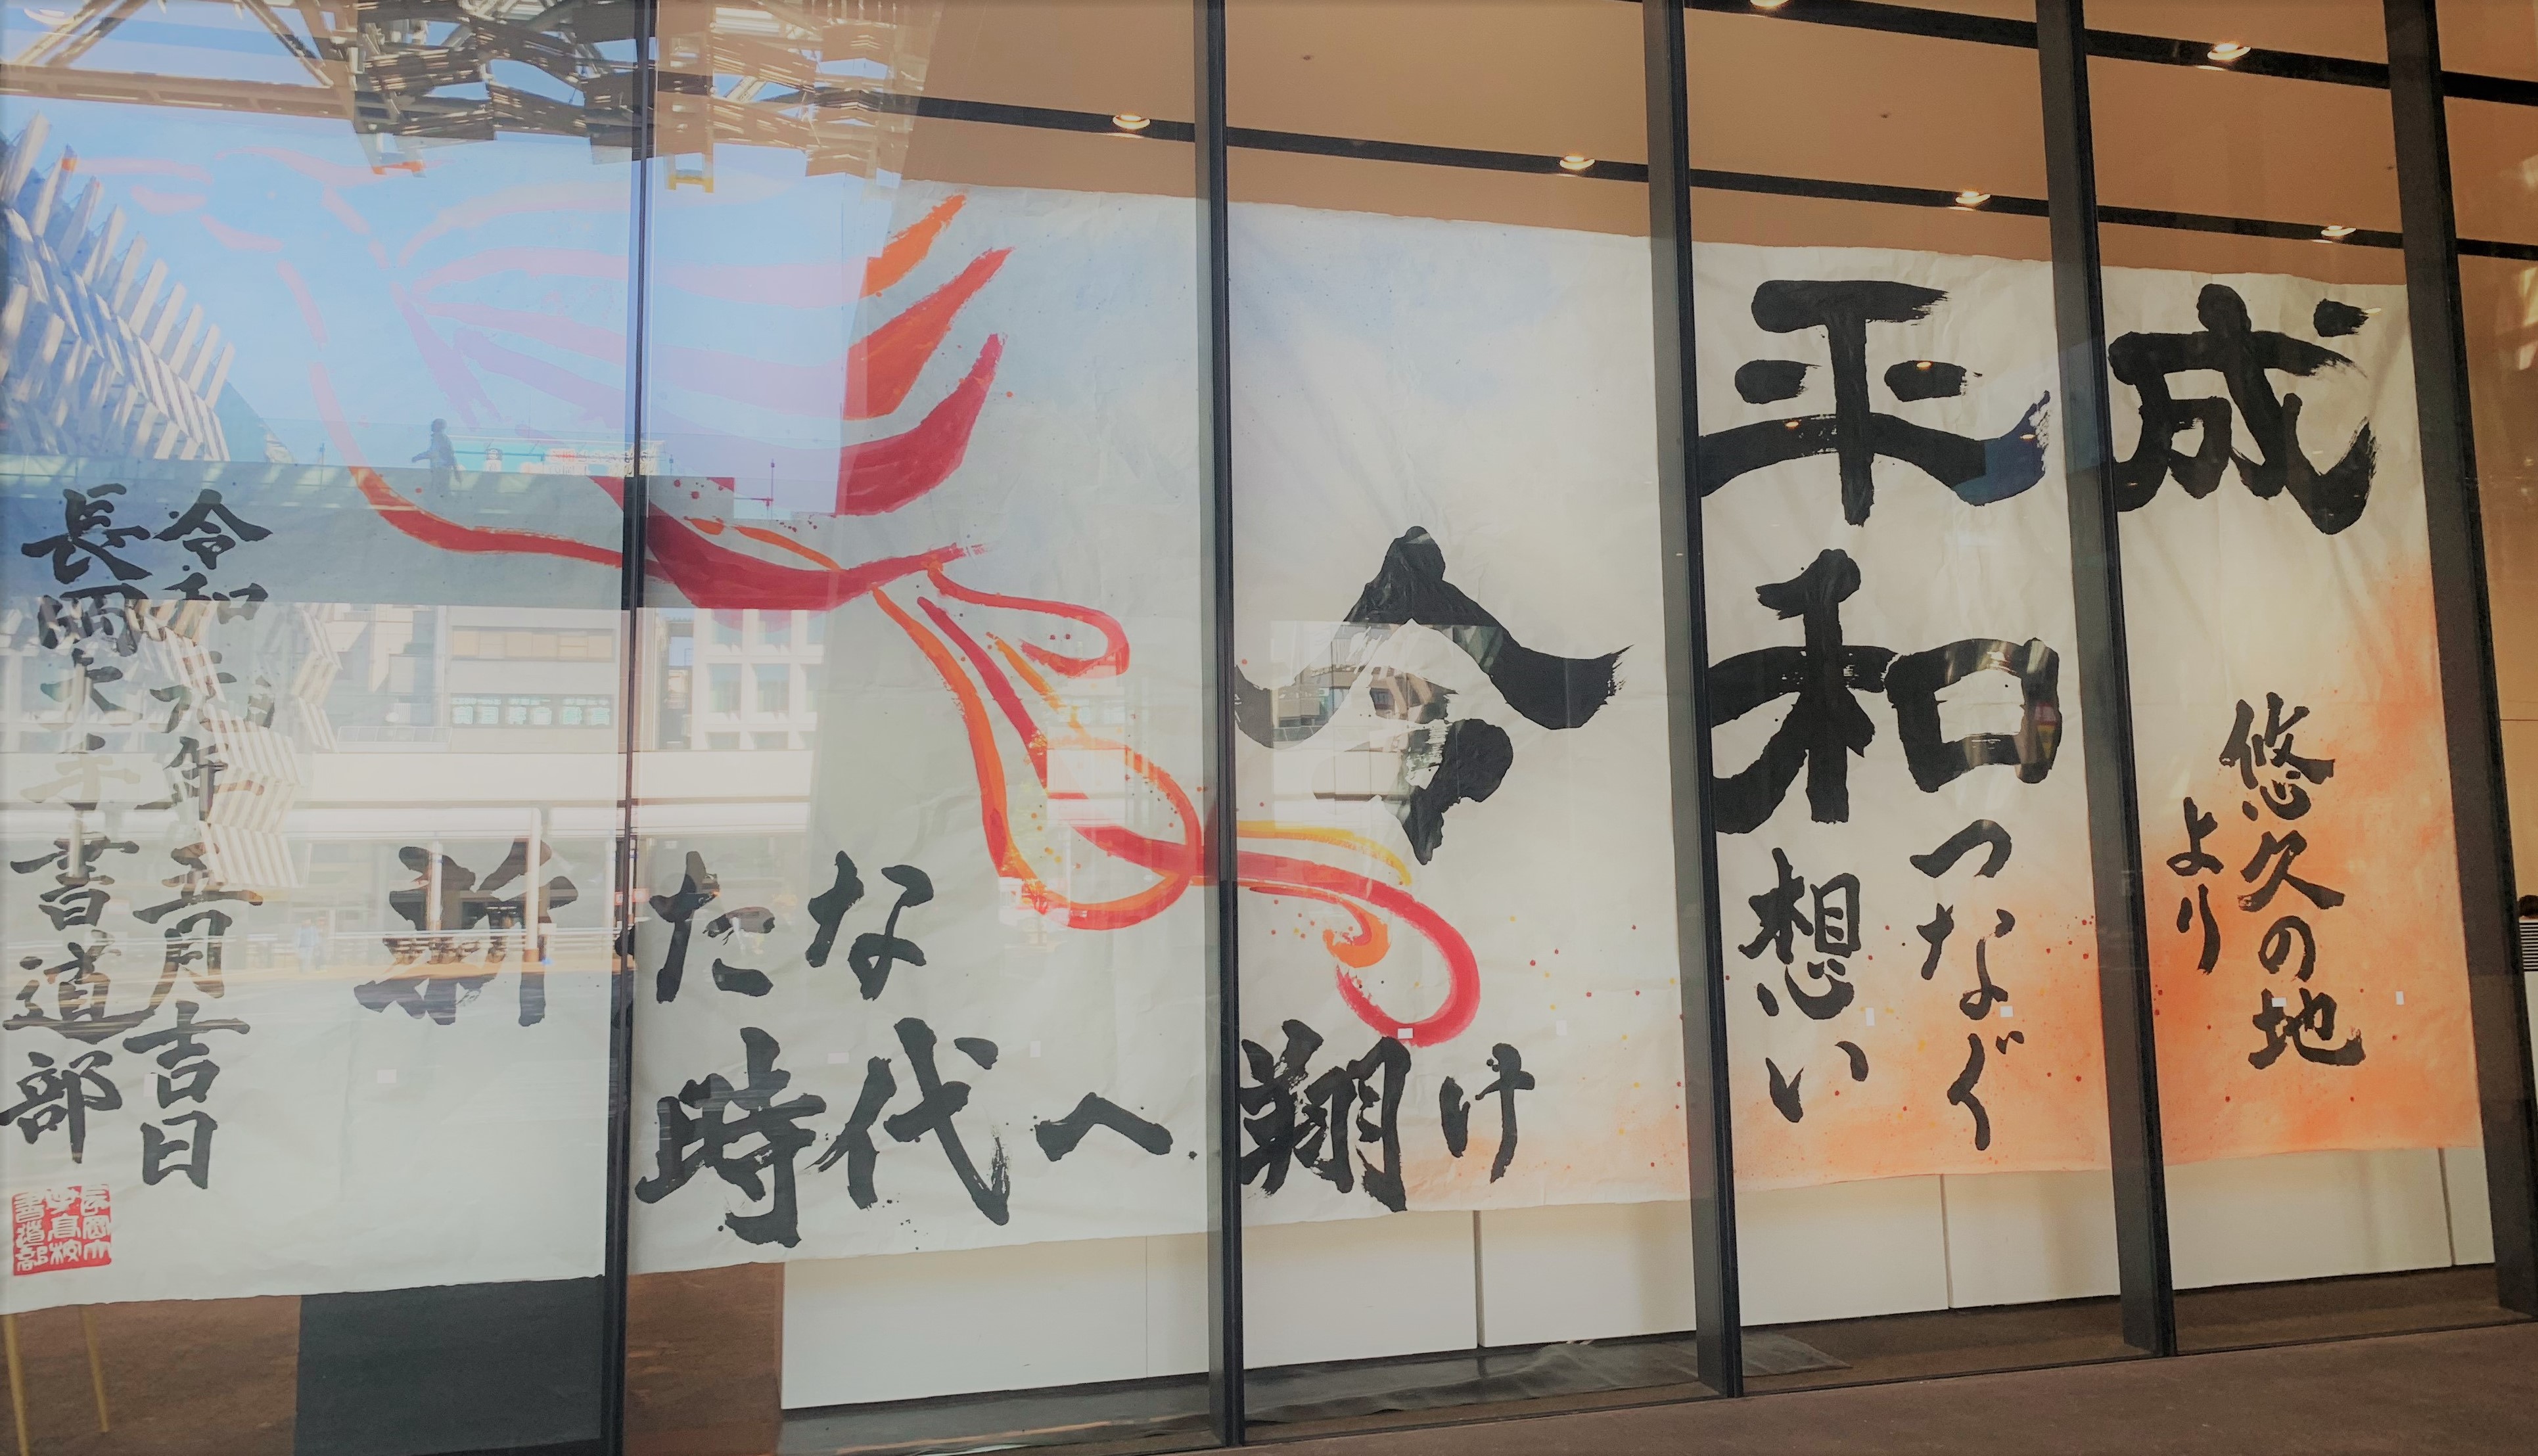 平成
令和
悠久の地
より
つなぐ
想い
新たな
時代へ翔け
令和元年五月吉日
長岡大手書道部
長岡大
手高校
書道部